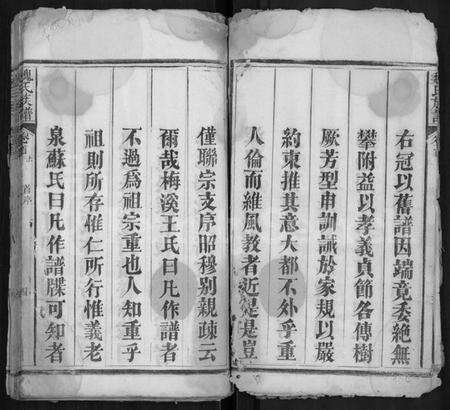 右冠以舊譜因端竟委絶無
攀附益以孝義貞節各傳樹
厥芳型申訓誡於家規以嚴
約束推其意大都不外乎重
人倫而維風教者近是是豈
僅聯宗支序昭穆别親疎云
爾哉梅溪王氏曰凡作譜者
不過爲祖宗重也人知重乎
祖則所存惟仁所行惟義老
泉蘇氏曰凡作譜牒可知者
魏氏族譜